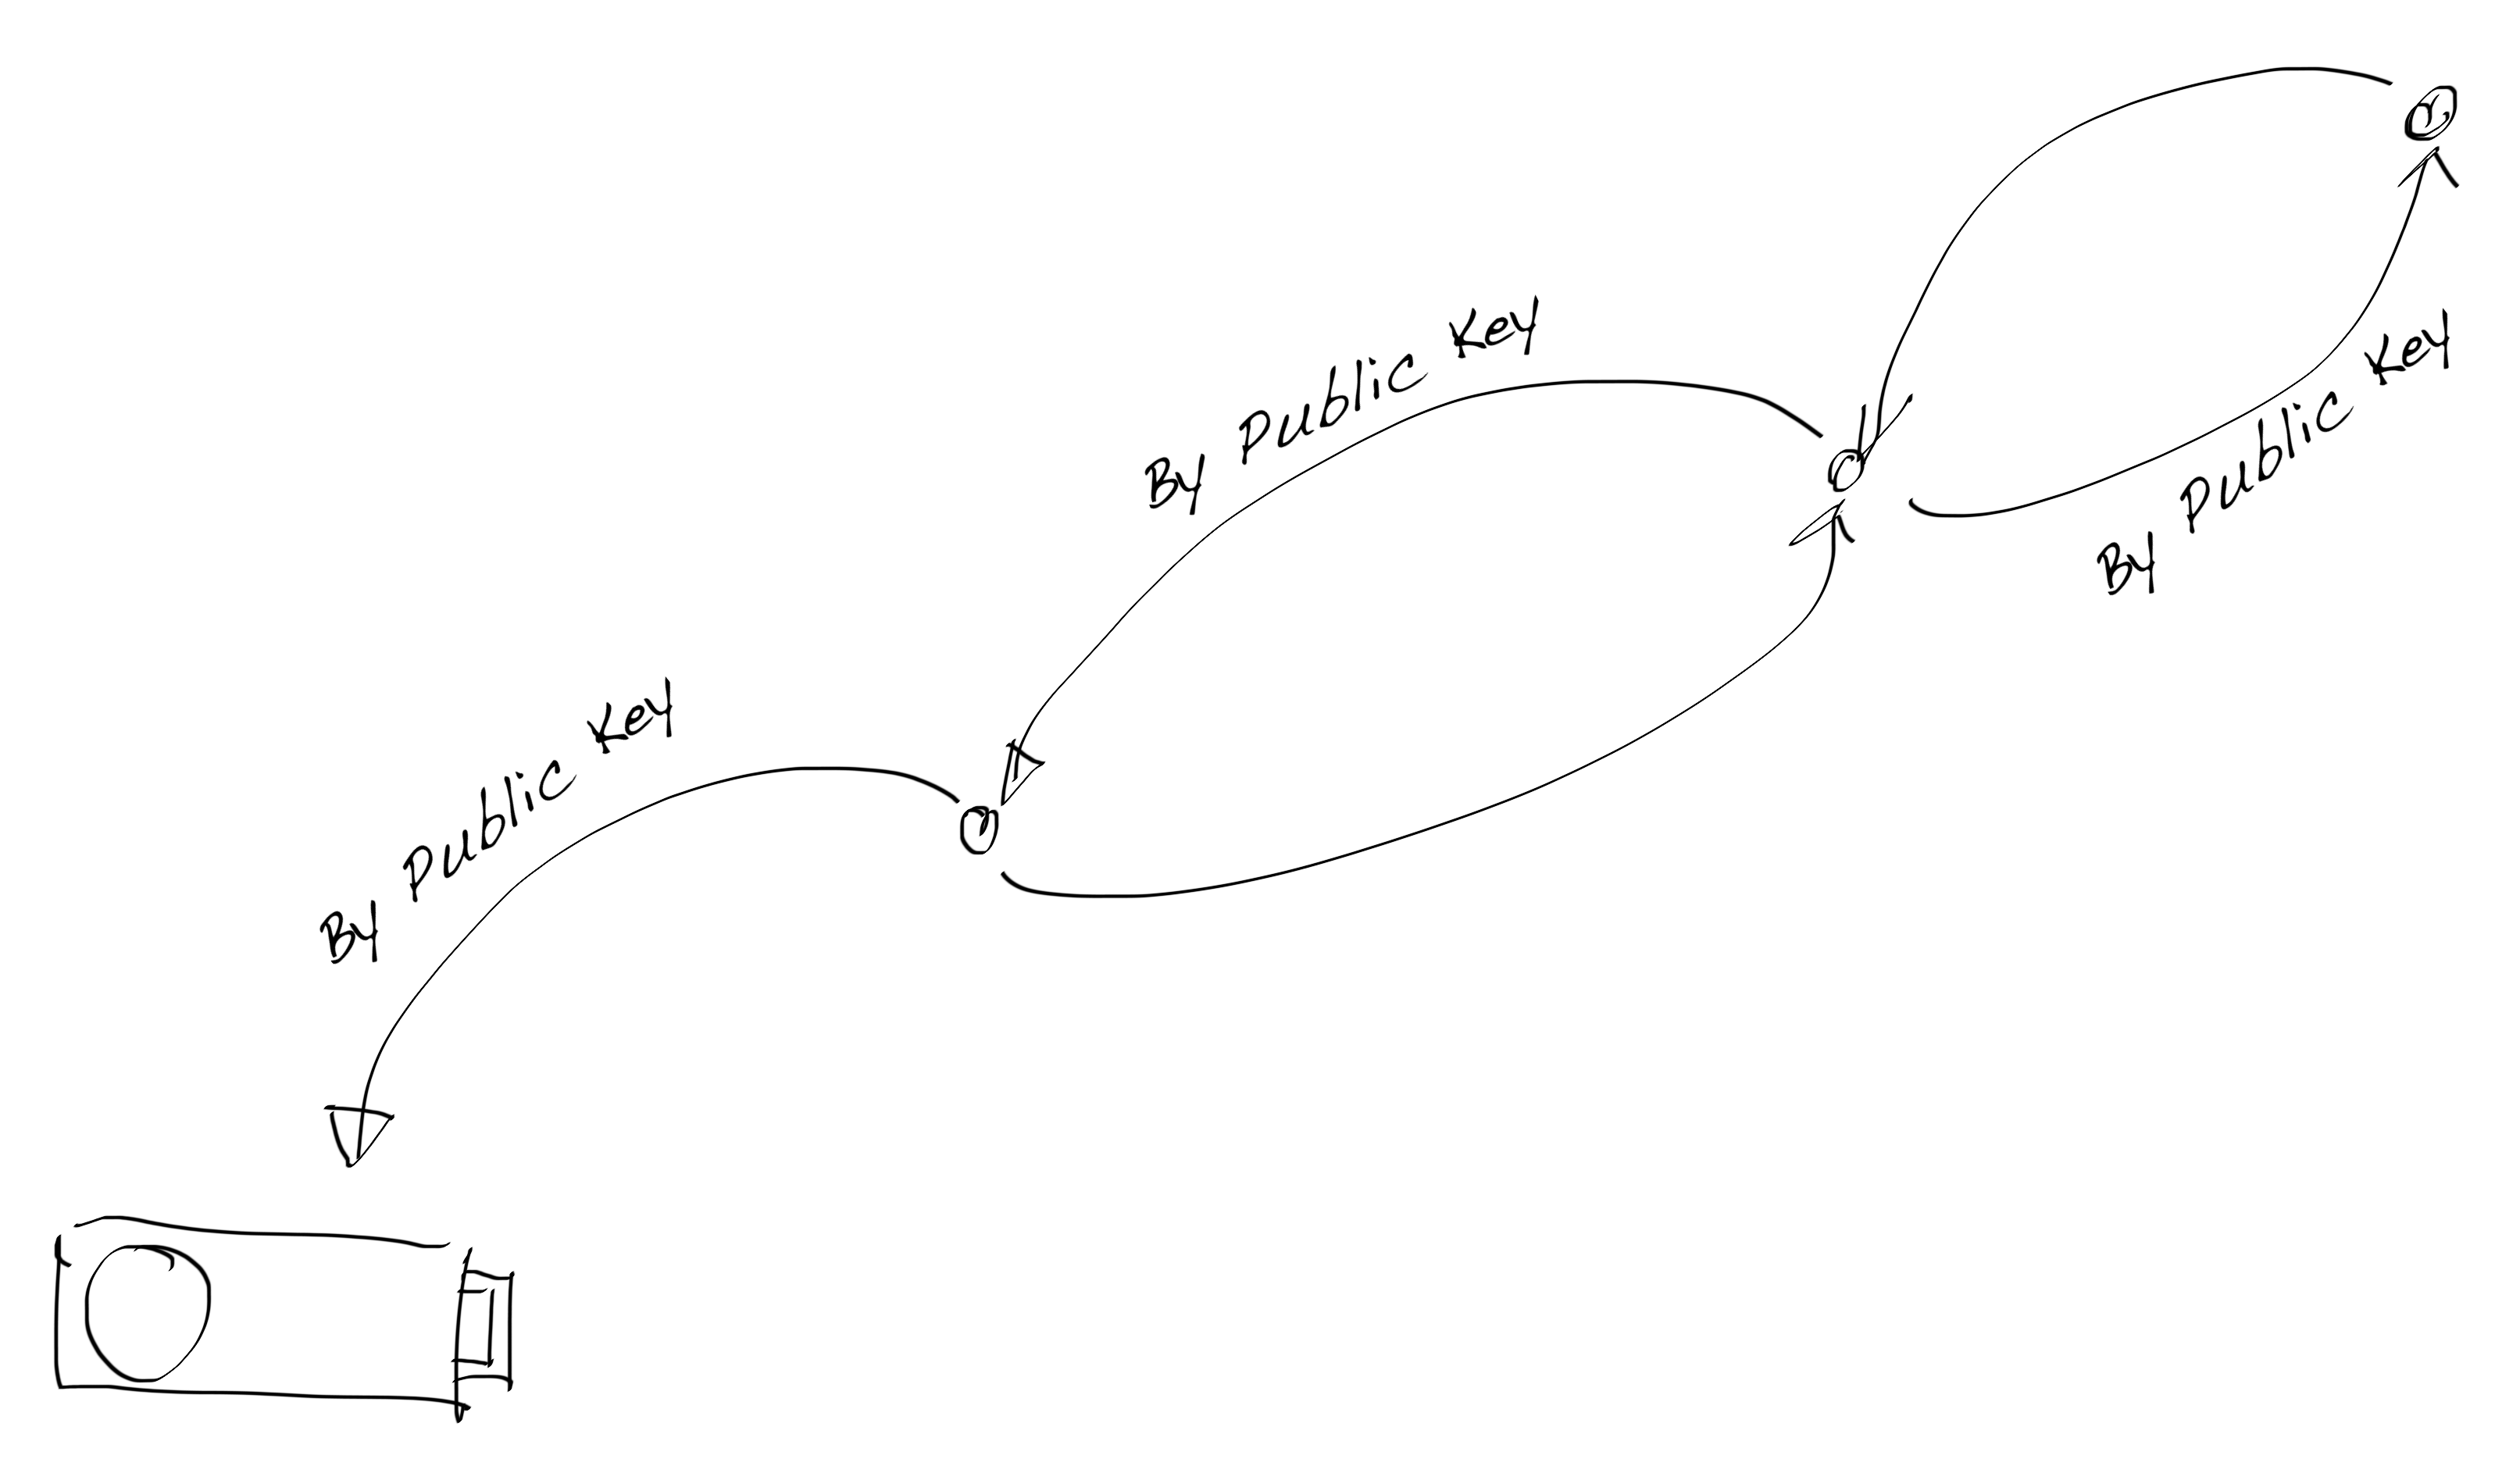 By Public Key
By Public Key
By Public Key